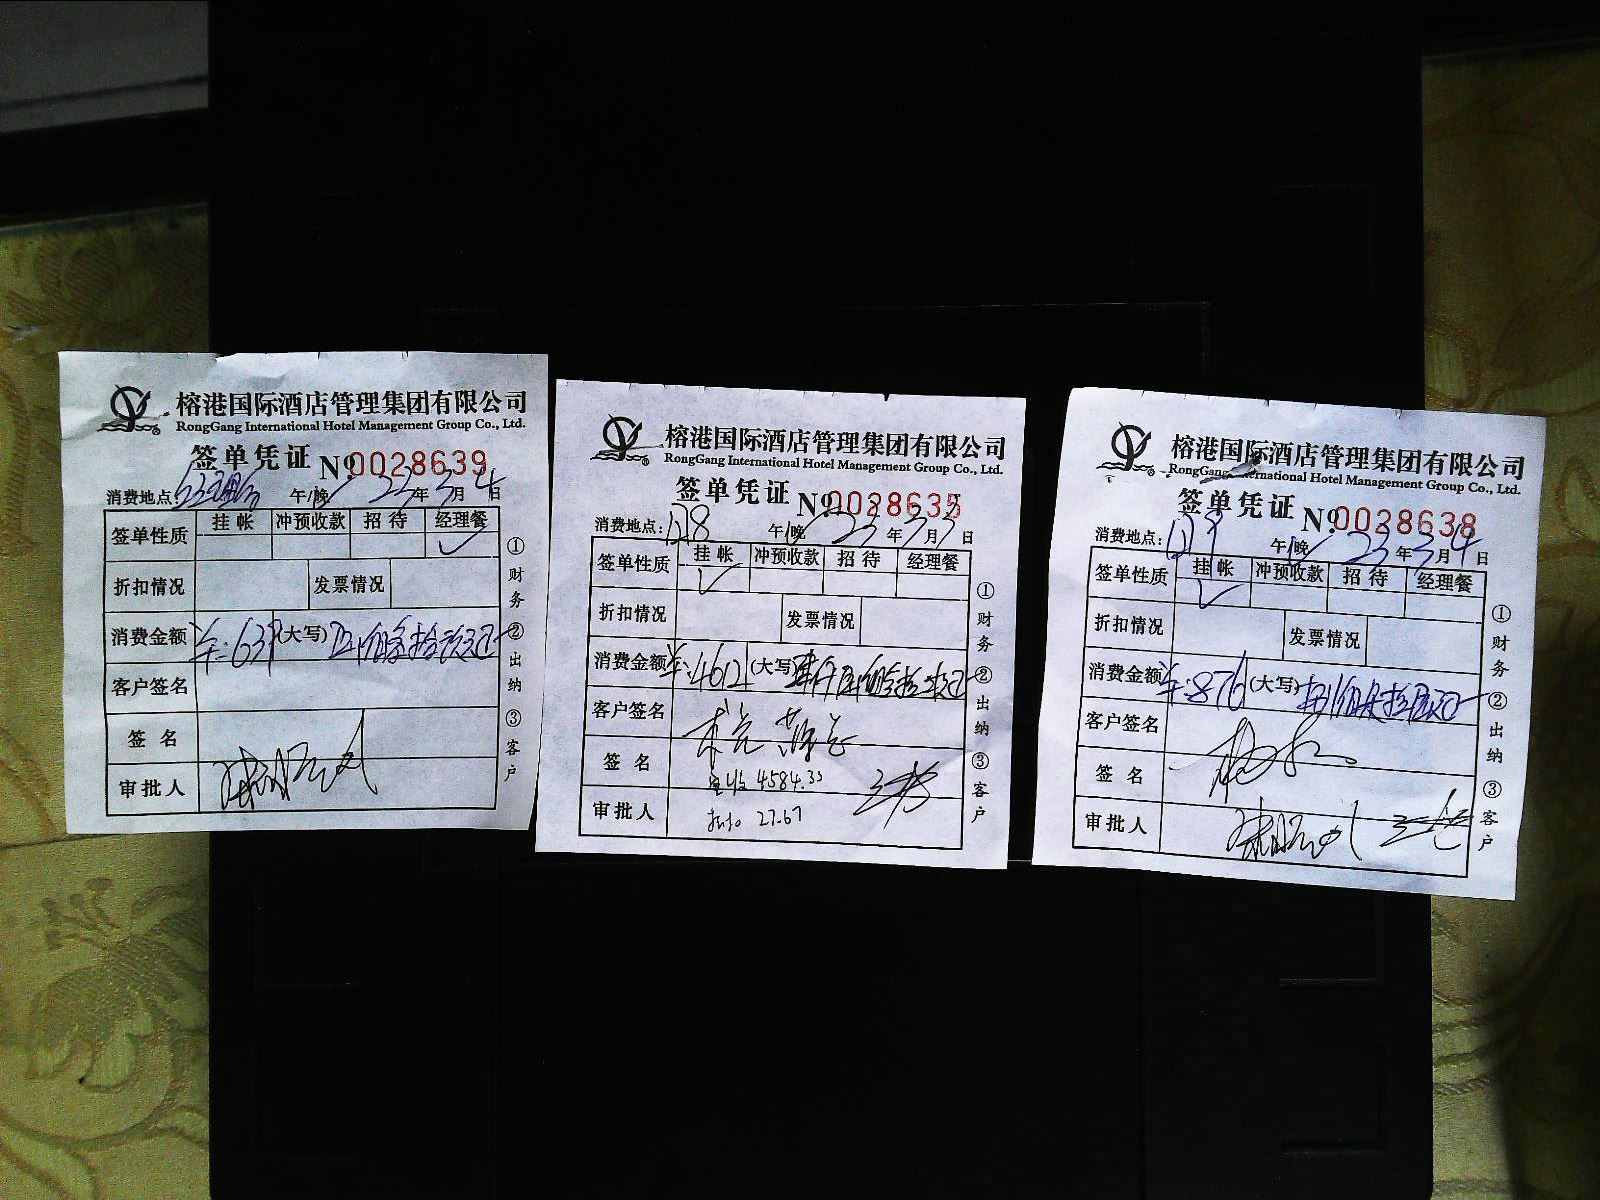 榕港国际酒店管理集团有限公司
RongGang International Hotel Management Group Co., Ltd.
签单凭证 № 0028639
消费地点: 午/晚 年 3 月 4 日
签单性质 挂帐 冲预收款 招待 经理餐
折扣情况 发票情况
消费金额 (大写)
客户签名
签名
审批人
①财务 ②出纳 ③客户
榕港国际酒店管理集团有限公司
RongGang International Hotel Management Group Co., Ltd.
签单凭证 № 0028635
消费地点: 午/晚 23 年 3 月 3 日
签单性质 挂帐 冲预收款 招待 经理餐
折扣情况 发票情况
消费金额 4612 (大写)
客户签名
签名 4584.33
审批人 27.67
①财务 ②出纳 ③客户
榕港国际酒店管理集团有限公司
RongGang International Hotel Management Group Co., Ltd.
签单凭证 № 0028638
消费地点: 午/晚 23 年 3 月 4 日
签单性质 挂帐 冲预收款 招待 经理餐
折扣情况 发票情况
消费金额 876 (大写)
客户签名
签名
审批人
①财务 ②出纳 ③客户